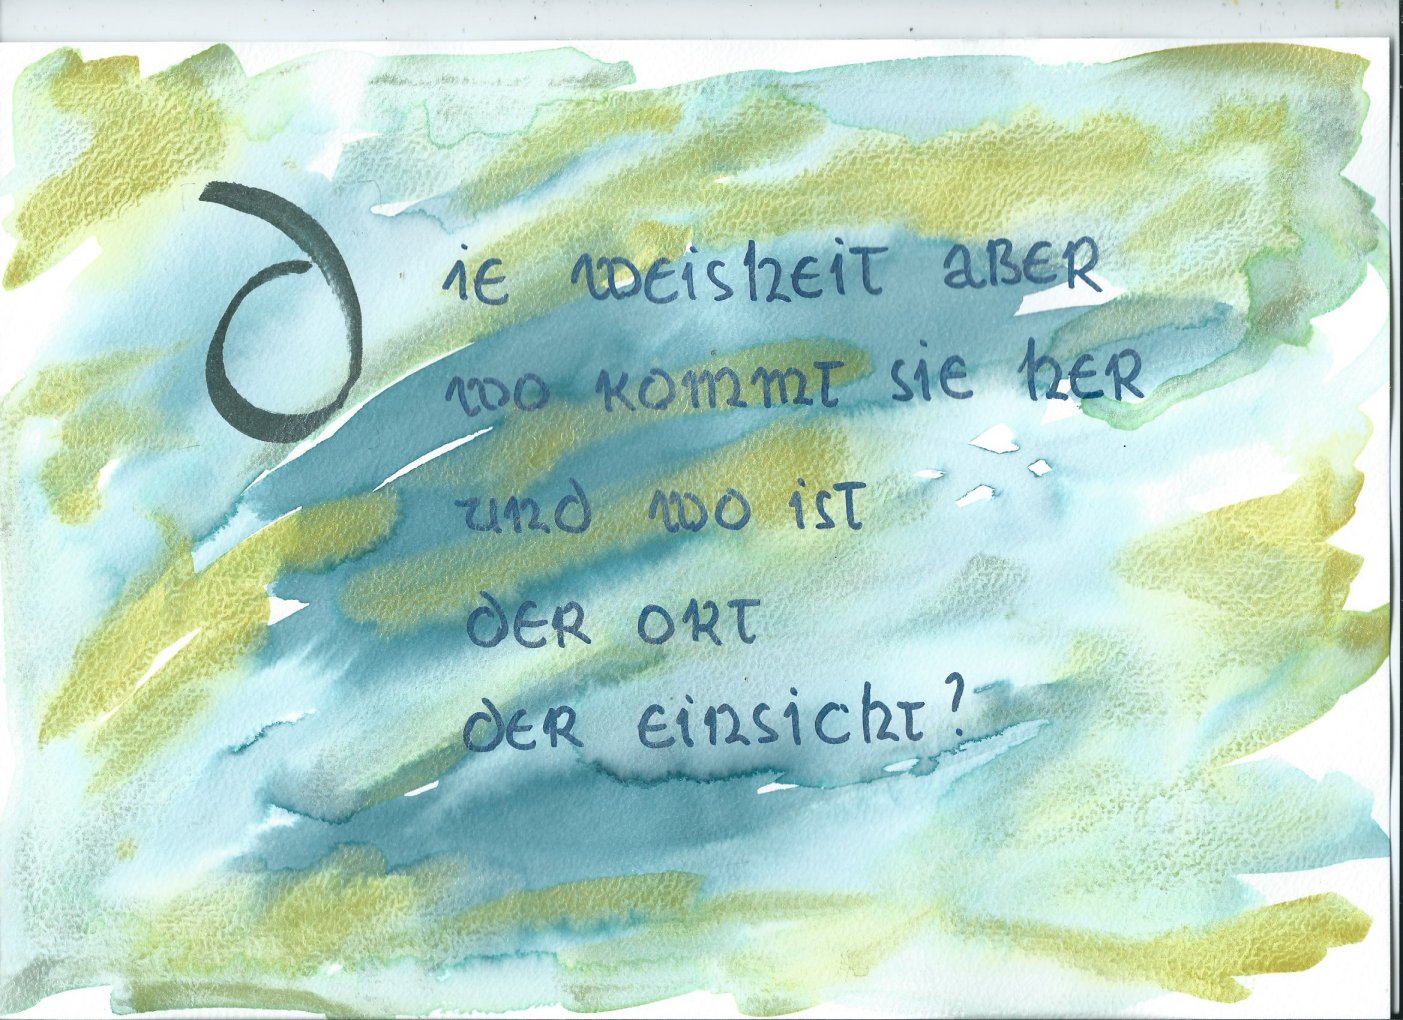 Die weisheit aber
wo kommt sie her
und wo ist
der ort
der einsicht?